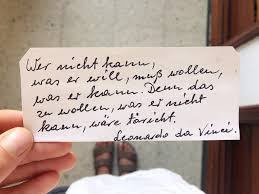 Wer nicht kann,
was er will, muß wollen,
was er kann. Denn das
zu wollen, was er nicht
kann, wäre töricht.
Leonardo da Vinci.